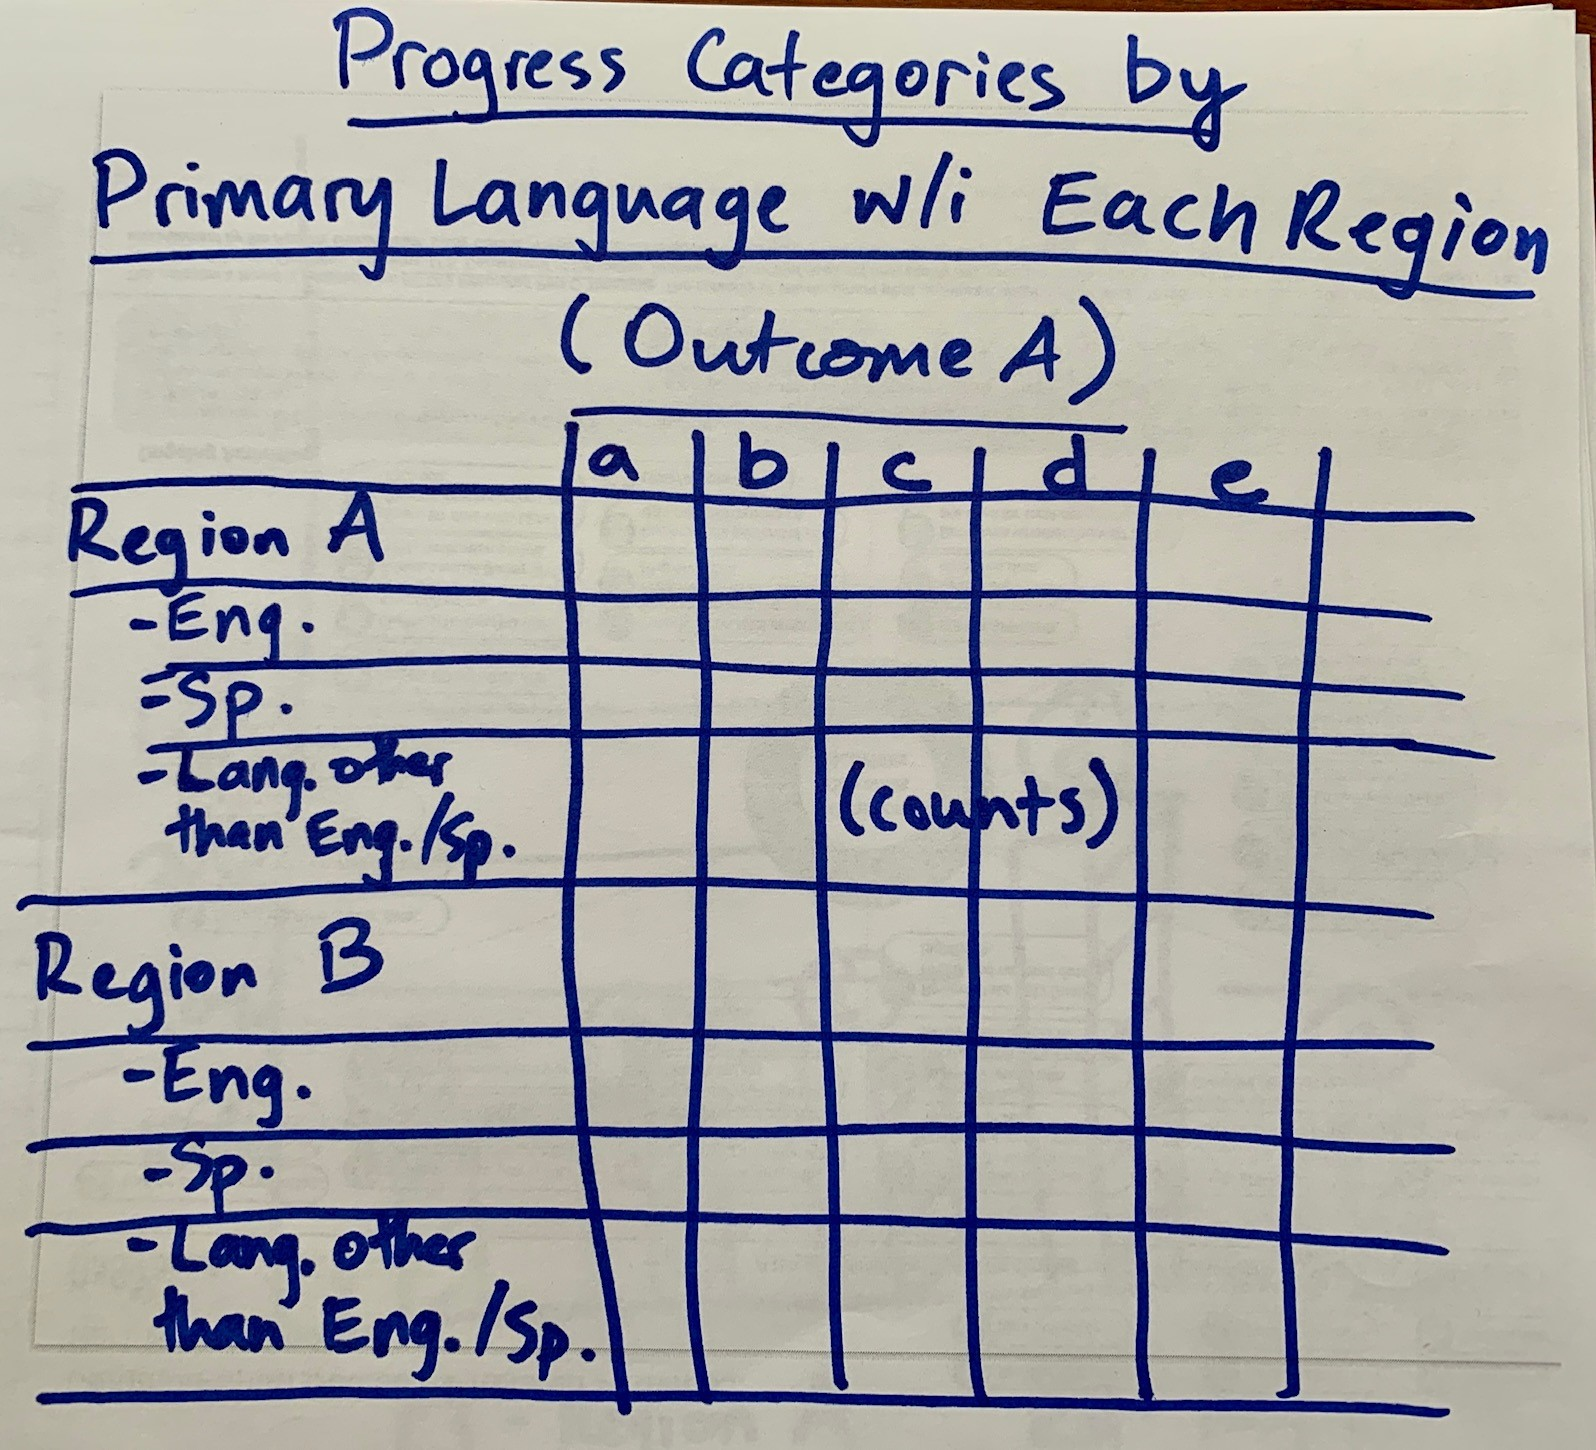 Progress Categories by
Primary Language w/i Each Region
(Outcome A)
a b c d e
Region A
-Eng.
-Sp.
-Lang. other
than Eng./Sp.
(counts)
Region B
-Eng.
-Sp.
-Lang. other
than Eng./Sp.